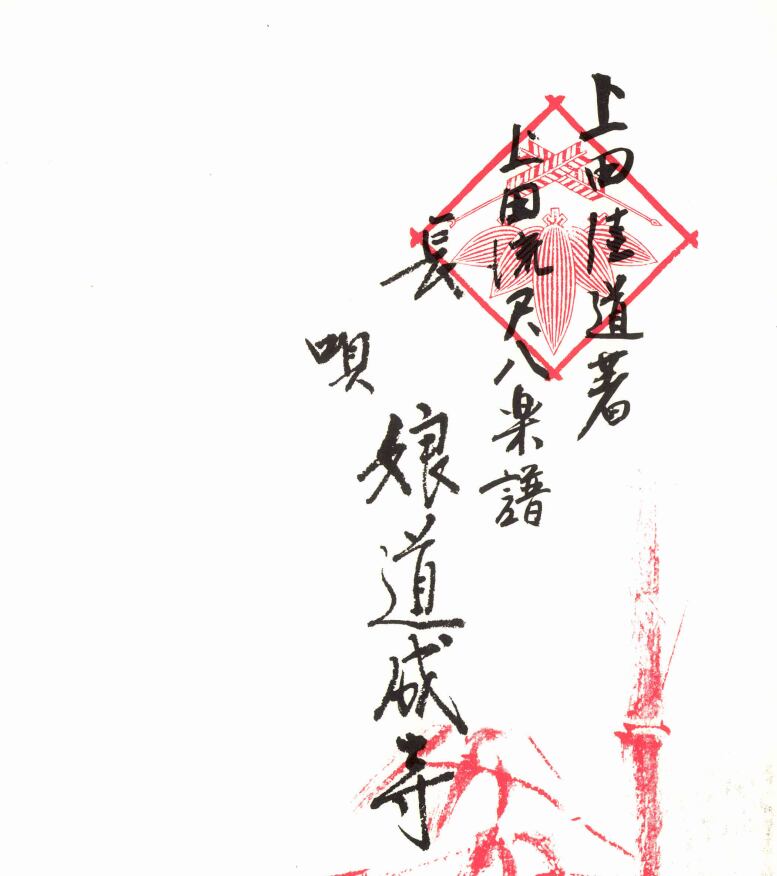 上田佳道著
上田流尺八楽譜
長唄
娘道成寺